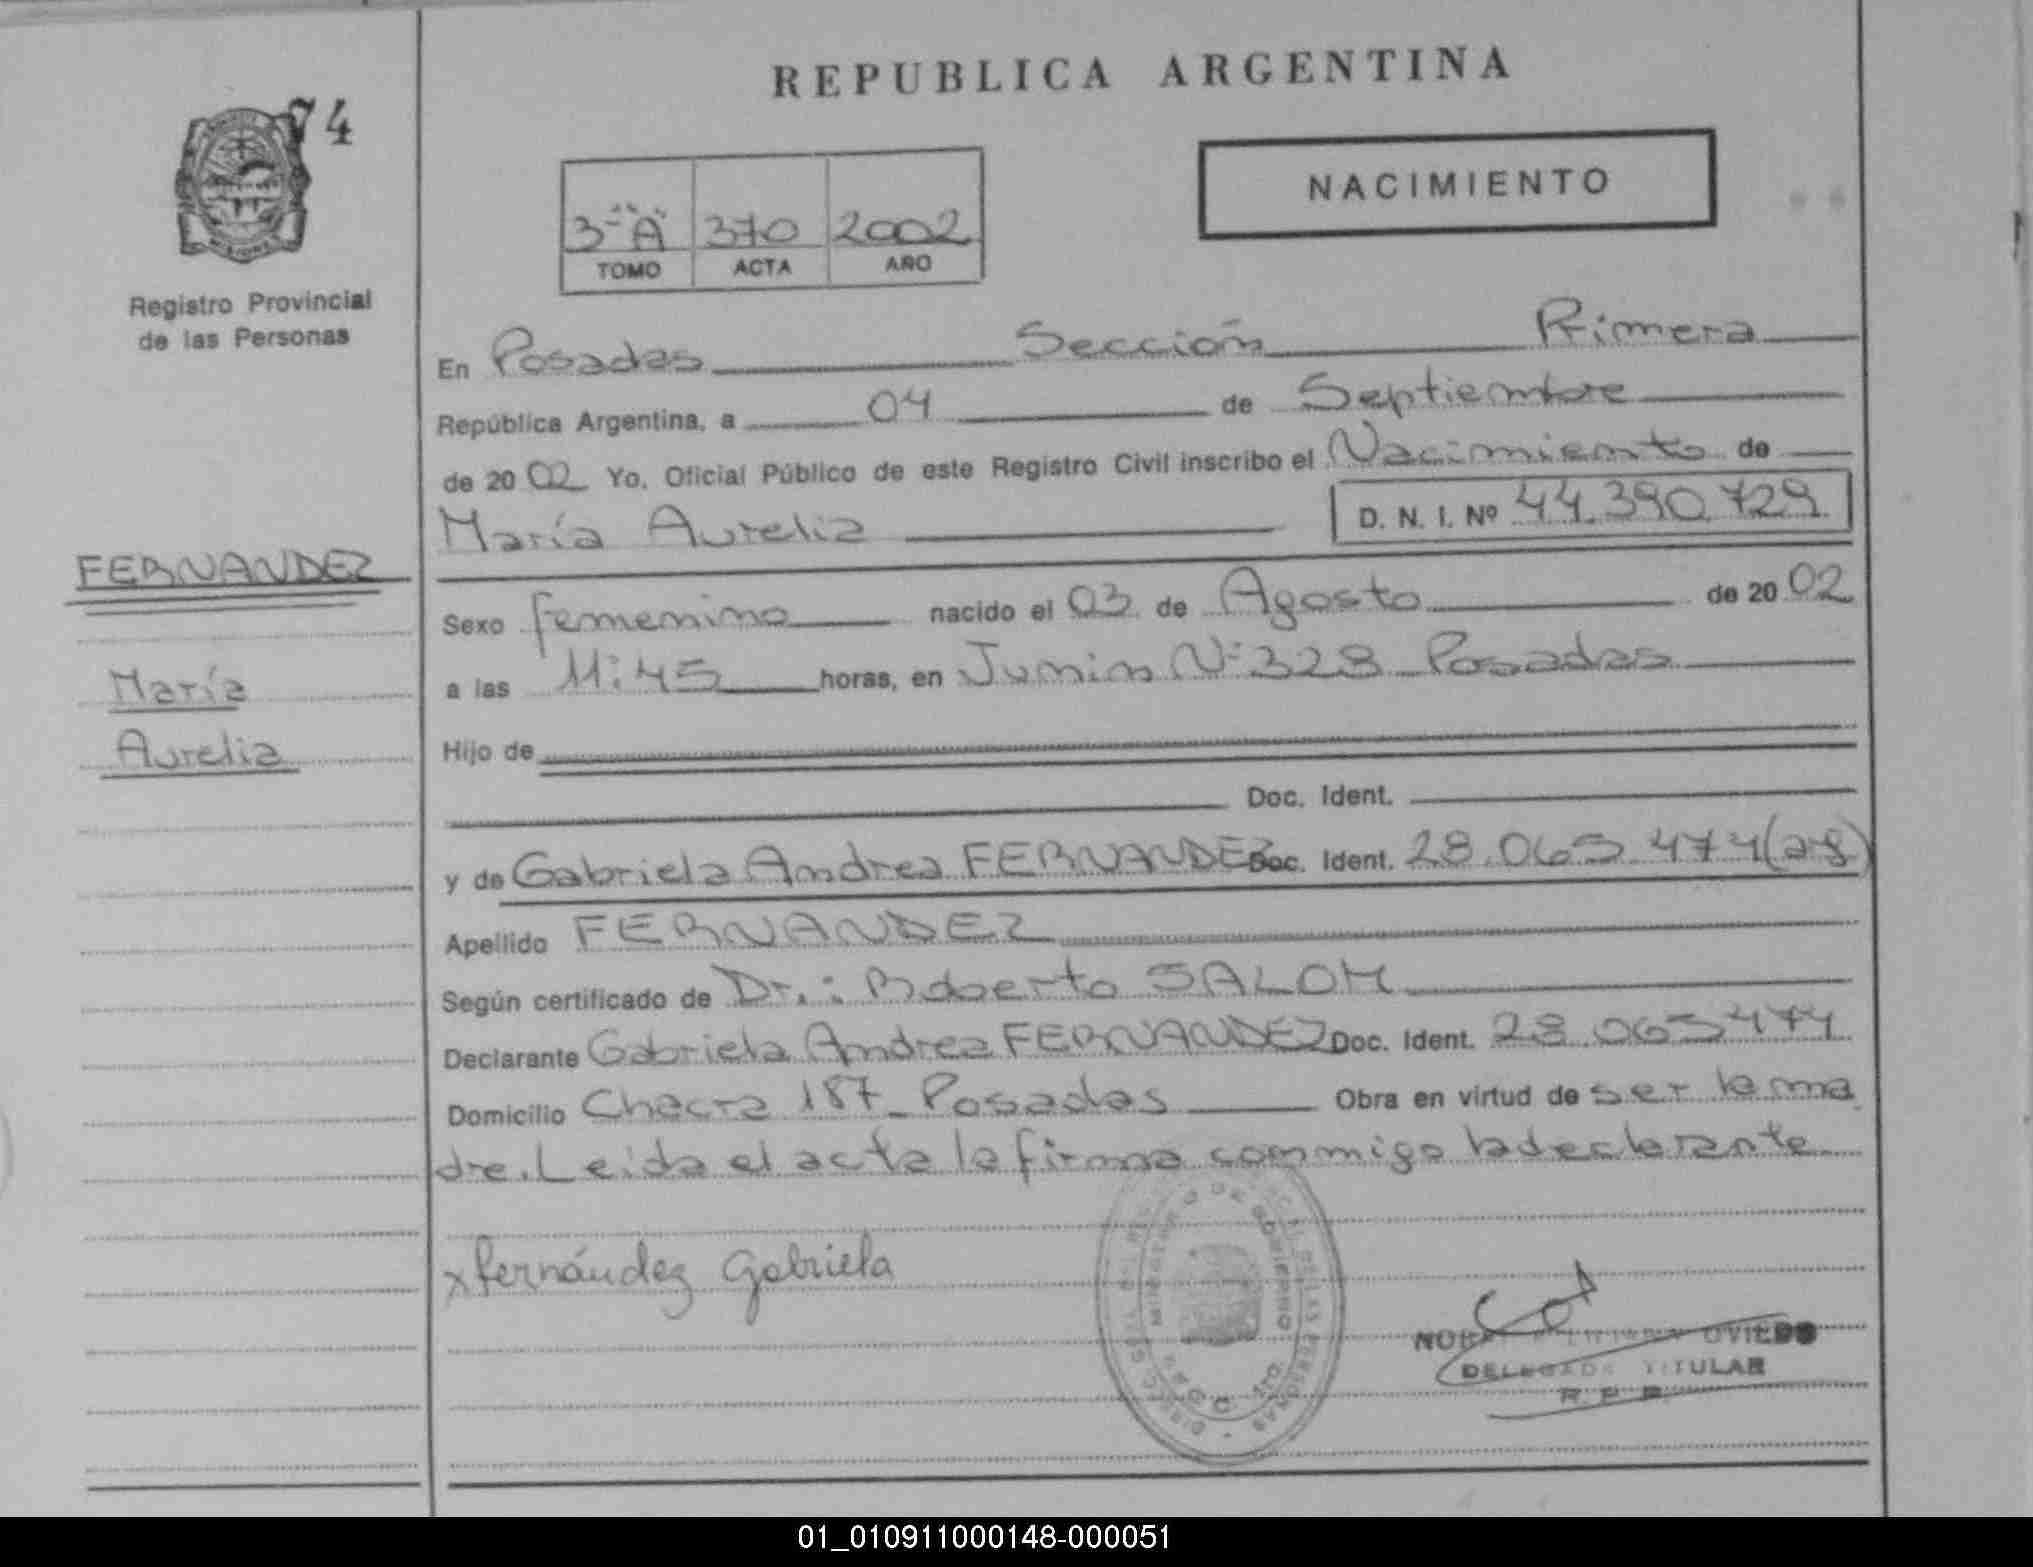 74
REPUBLICA ARGENTINA
NACIMIENTO
3-"A" 370 2002
TOMO ACTA AÑO
Registro Provincial
de las Personas
En Posadas Sección Primera
República Argentina, a 04 de Septiembre
de 2002 Yo, Oficial Público de este Registro Civil inscribo el Nacimiento de
María Aurelia D. N. I. Nº 44.390.729
FERNANDEZ
María
Aurelia
Sexo femenino nacido el 03 de Agosto de 2002
a las 11:45 horas, en Junin Nº 328 Posadas
Hijo de
Doc. Ident.
y de Gabriela Andrea FERNANDEZ Doc. Ident. 28.065.474(ag)
Apellido FERNANDEZ
Según certificado de Dr.: Roberto SALOM
Declarante Gabriela Andrea FERNANDEZ Doc. Ident. 28.065474
Domicilio Chacra 187_Posadas Obra en virtud de ser la ma
dre. Leida el acta la firma conmigo la declarante
x fernández Gabriela
MINISTERIO DE GOBIERNO
OVIEDO
DELEGADA TITULAR
R. P. P.
01_010911000148-000051